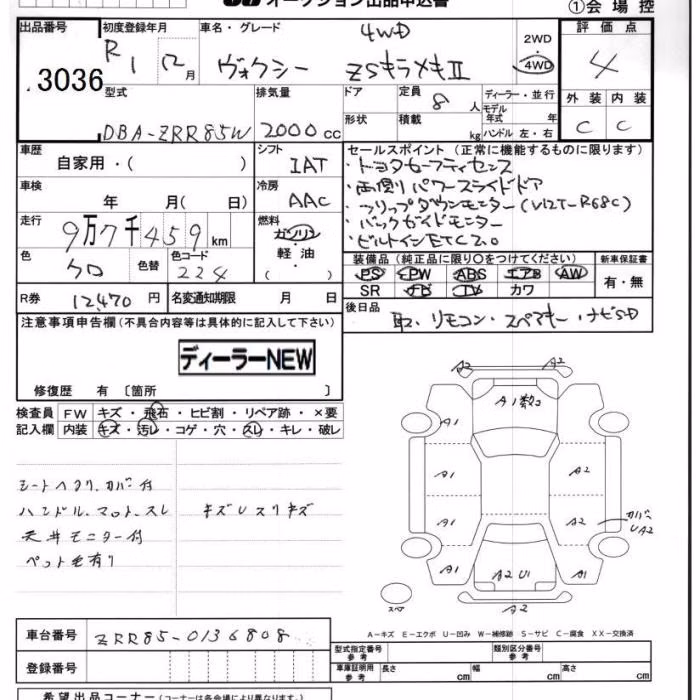 オークション出品申込書
①会場控
出品番号
3036
初度登録年月
R1 12月
車名・グレード
4WD
ヴォクシー ZSキラメキII
2WD
・
4WD
評価点
4
外装 内装
C C
型式
DBA-ZRR85W
排気量
2000cc
ドア
形状
定員 8人
積載 kg
ディーラー・並行
モデル年式 年
ハンドル 左・右
車歴
自家用・( )
シフト
IAT
車検
年 月( 日)
冷房
AAC
走行
9万7千459km
燃料
ガソリン
・
軽油
・
( )
色
クロ
色替
色コード
224
R券 12,470円
名変通知期限 月 日
セールスポイント (正常に機能するものに限ります)
・トヨタセーフティセンス
・両側パワースライドドア
・フリップダウンモニター(V12T-R68C)
・バックガイドモニター
・ビルトインETC2.0
装備品(純正品に限り○をつけてください)
PS PW ABS エアB AW
SR ナビ TV カワ
新車保証書
有・無
後日品
取、リモコン、スペアキー、ナビSD
注意事項申告欄(不具合内容等は具体的に記入して下さい)
ディーラーNEW
修復歴 有 〔箇所 〕
検査員記入欄
FW キズ・飛石・ヒビ割・リペア跡・×要
内装 キズ・汚レ・コゲ・穴・スレ・キレ・破レ
シートヘタリ、カバー付
ハンドル、マット、スレ キズUスリキズ
天井モニター付
ペット毛有り
A2 A2
A1数コ
A1 A1
A1 A2
A1 A2
カバー
UA2
A1 A2U1 A1
A2
スペア
A-キズ E-エクボ U-凹み W-補修跡 S-サビ C-腐食 XX-交換済
車台番号 ZRR85-0136808
登録番号
型式指定番号 参考
類別区分番号 参考
車庫証明用 参考 長さ cm 幅 cm 高さ cm
希望出品コーナー(コーナーは各会場により異なります)